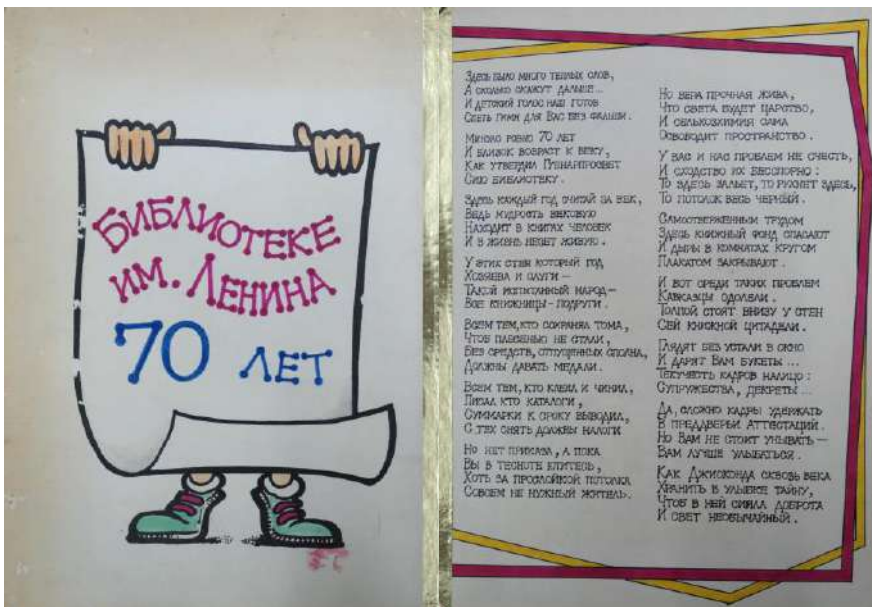 БИБЛИОТЕКЕ
ИМ. ЛЕНИНА
70 ЛЕТ
Здесь было много теплых слов,
А сколько скажут дальше...
И детский голос наш готов
Спеть гимн для Вас без фальши.
Минуло ровно 70 лет
И близок возраст к веку,
Как утвердил Губнарпросвет
Сию библиотеку.
Здесь каждый год считай за век,
Ведь мудрость вековую
Находит в книгах человек
И в жизнь несет живую.
У этих стен который год
Хозяева и слуги —
Такой испытанный народ —
Все книжницы-подруги.
Всем тем, кто сохранял тома,
Чтоб плесенью не стали,
Без средств, отпущенных сполна,
Должны давать медали.
Всем тем, кто клеил и чинил,
Писал кто каталоги,
Суммарки к сроку выводил,
С тех снять должны налоги
Но нет приказа, а пока
Вы в тесноте ютитесь,
Хоть за прослойкой потолка
Совсем не нужный житель.
Но вера прочная жива,
Что света будет царство,
И сельхозхимия сама
Освободит пространство.
У вас и нас проблем не счесть,
И сходство их бесспорно:
То здесь зальет, то рухнет здесь,
То потолок весь черный.
Самоотверженным трудом
Здесь книжный фонд спасают
И дыры в комнатах кругом
Плакатом закрывают.
И вот среди таких проблем
Кавказцы одолели.
Толпой стоят внизу у стен
Сей книжной цитадели.
Глядят без устали в окно
И дарят Вам букеты...
Текучесть кадров налицо:
Супружества, декреты...
Да, сложно кадры удержать
В преддверьи Аттестаций.
Но Вам не стоит унывать —
Вам лучше улыбаться.
Как Джиоконда сквозь века
Хранить в улыбке тайну,
Чтоб в ней сияла доброта
И свет необычайный.